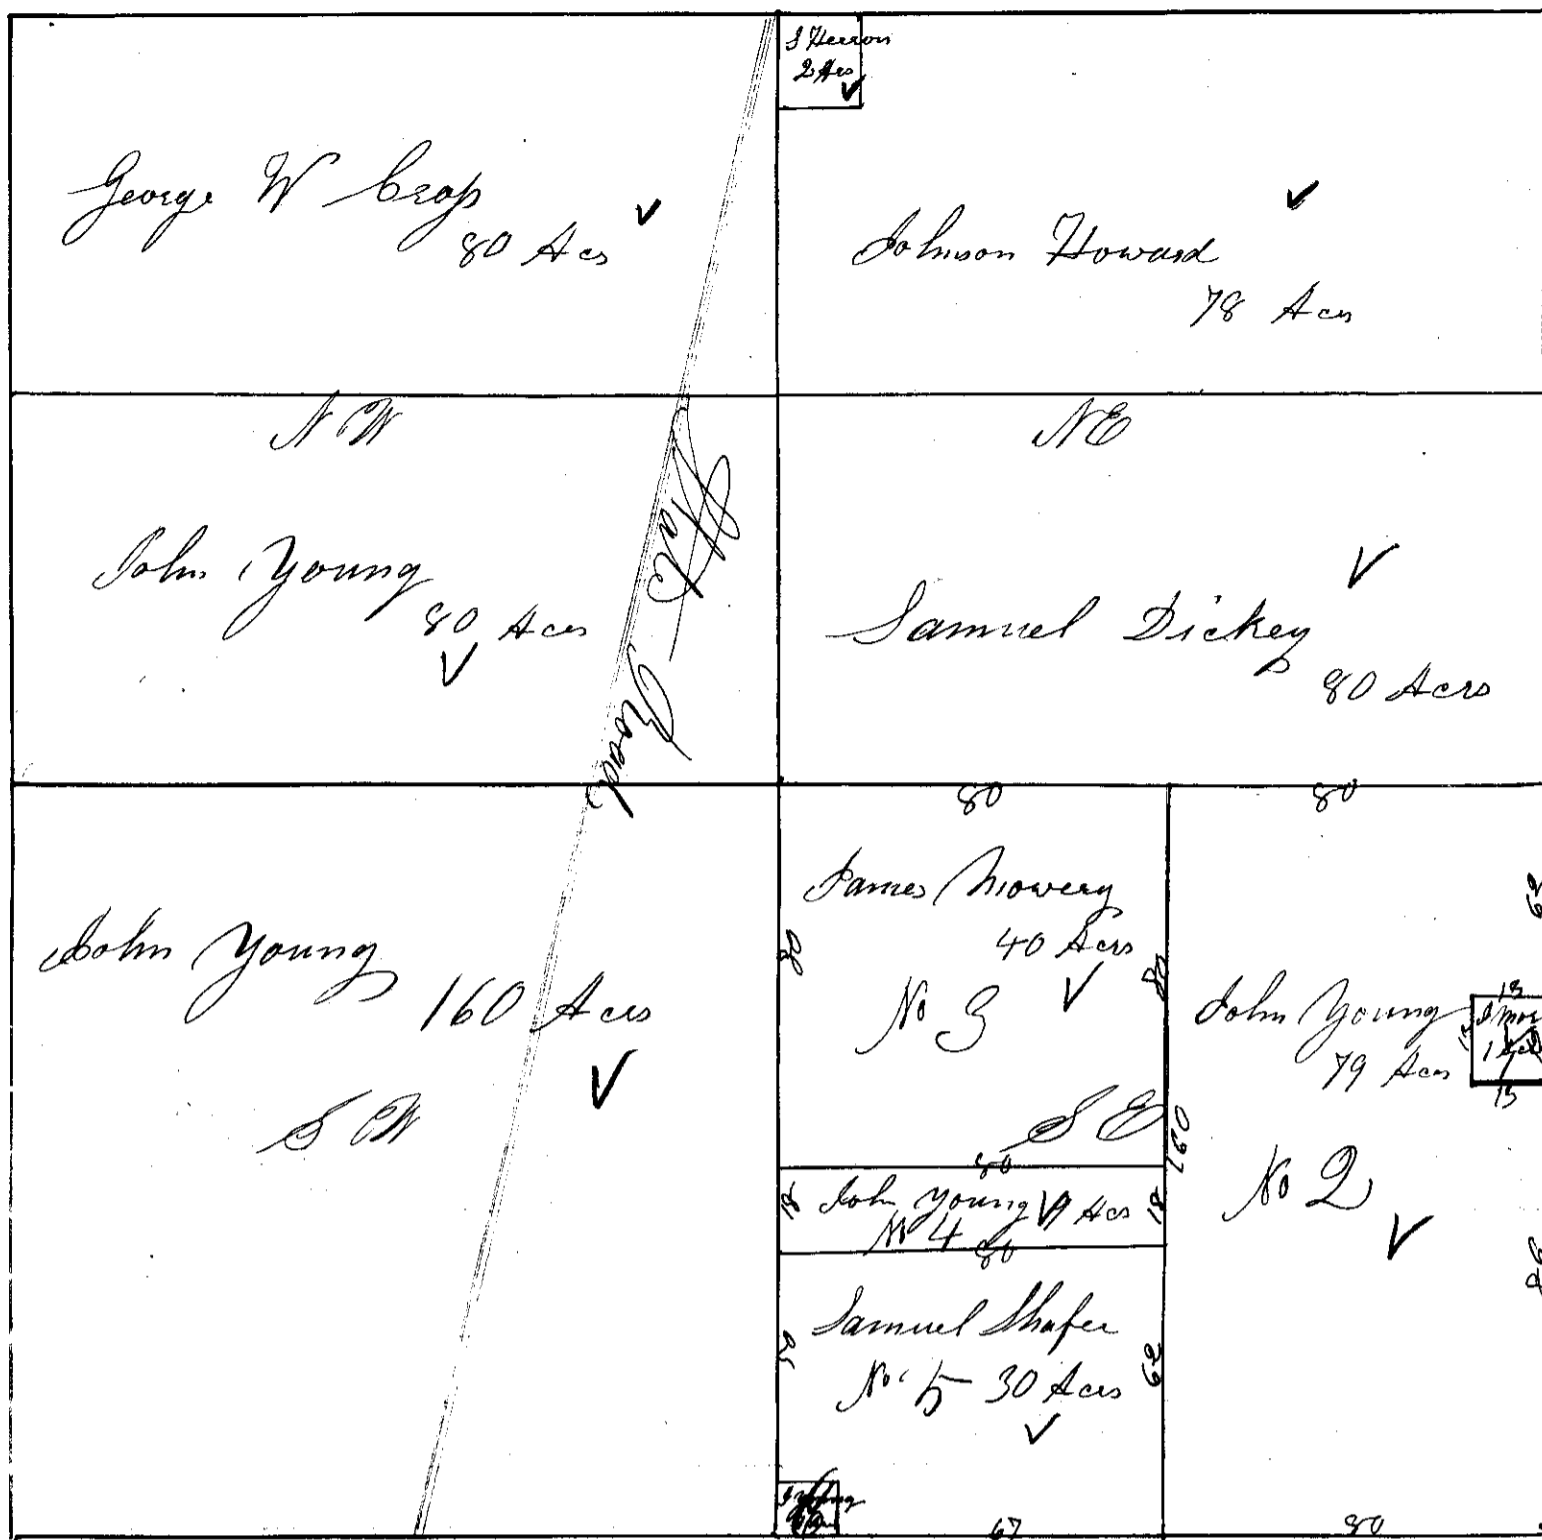 S Herron
2 Acs
George W Cross
80 Acs
Johnson Howard
78 Acs
N W
N E
State Road
John Young
80 Acs
Samuel Dickey
80 Acrs
80
80
John Young
160 Acrs
S W
James Mowery
40 Acrs
No 3
80
80
S E
80
62
John Young
79 Acrs
No 2
13
13
1
13
160
18
John Young Acs
No 4
18
80
Samuel Shafer
No 5 30 Acrs
62
67
80